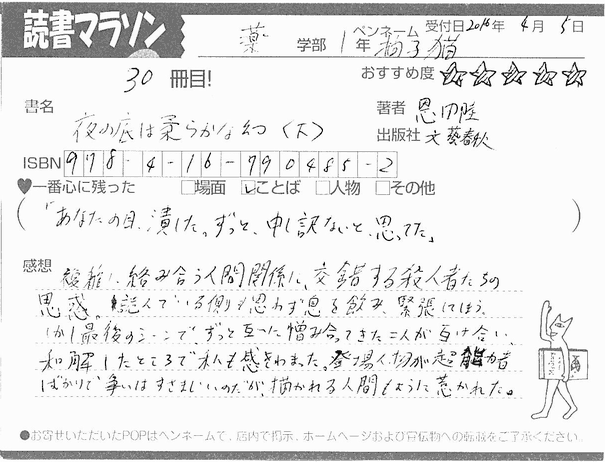 読書マラソン
ペンネーム 受付日2016年 4月 5日
薬 学部 1年 梅子猫
30 冊目!
おすすめ度 ☆☆☆☆☆
書名
著者 恩田陸
夜の底は柔らかな幻〈下〉
出版社 文藝春秋
ISBN 978-4-16-790485-2
♥一番心に残った □場面 ☑ことば □人物 □その他
(「あなたの目、潰した。ずっと、申し訳ないと、思ってた。」)
感想
複雑に絡み合う人間関係に、交錯する殺人者たちの
思惑。読んでいる側も思わず息を飲み、緊張してしまう。
しかし最後のシーンで、ずっと互いに憎み合ってきた二人が助け合い、
和解したところで私も感きわまった。登場人物が超能力者
ばかりで争いはすさまじいのだが、描かれる人間もように惹かれた。
●お寄せいただいたPOPはペンネームで、店内で掲示、ホームページおよび宣伝物への転載をご了承ください。